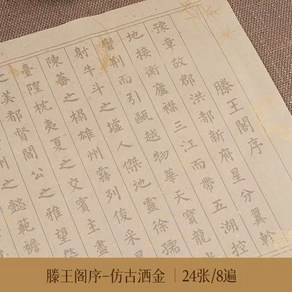 滕王閣序
豫章故郡洪都新府星分翼軫
地接衡廬襟三江而帶五湖控
蠻荊而引甌越物華天寶
射牛斗之墟人傑地靈徐孺
陳蕃之榻雄州霧列俊
臺隍枕夷夏之交賓主盡
之美都督閻公之雅望
之懿範襜
滕王阁序-仿古洒金 | 24张/8遍